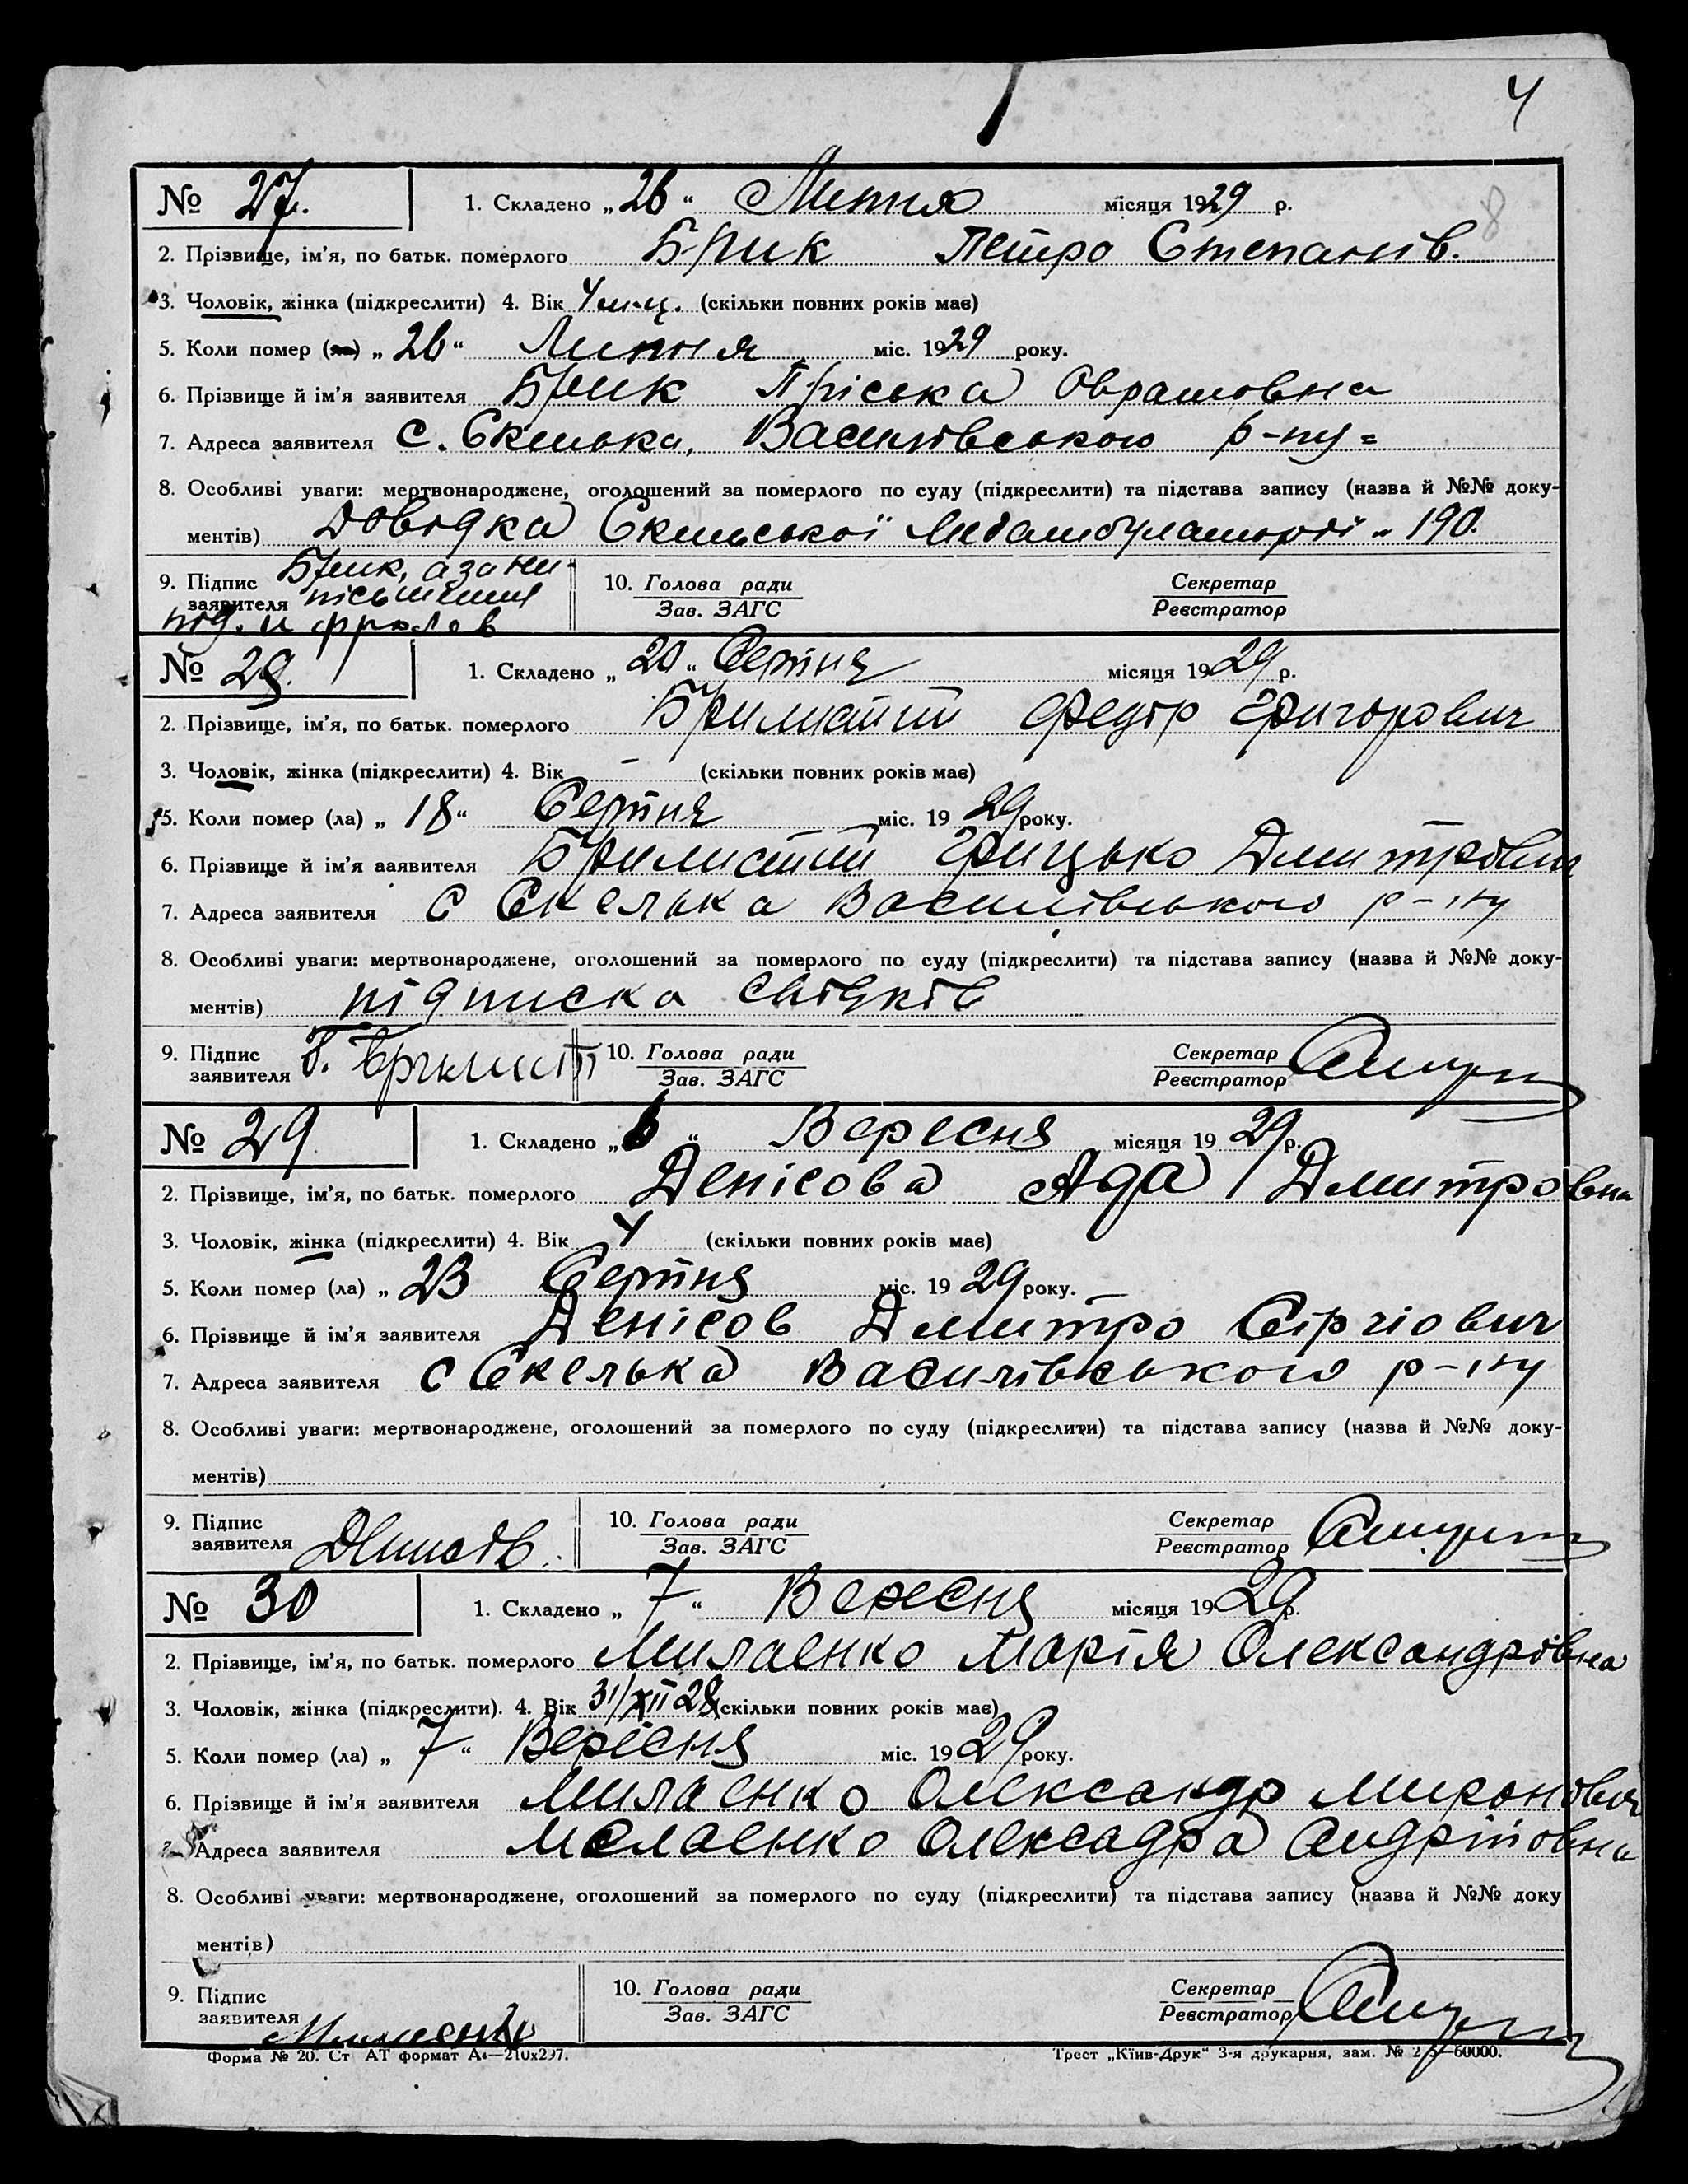 4
№ 27.
1. Складено „26“ Липня місяця 1929 р.
8
2. Прізвище, ім'я, по батьк. померлого Брик Петро Степанів.
3. Чоловік, жінка (підкреслити) 4. Вік 4 м-ц. (скільки повних років має)
5. Коли помер (ла) „26“ Липня міс. 1929 року.
6. Прізвище й ім'я заявителя Брик Пріська Оврамовна
7. Адреса заявителя с. Скелька, Василівського р-ну
8. Особливі уваги: мертвонароджене, оголошений за померлого по суду (підкреслити) та підстава запису (назва й №№ доку-
ментів) Довідка Скельської Медамбулаторії 190.
9. Підпис Брик, а за не-
заявителя письменну
10. Голова ради
Зав. ЗАГС
Секретар
Реєстратор
під. и фролов
№ 28.
1. Складено „20“ Серпня місяця 1929 р.
2. Прізвище, ім'я, по батьк. померлого Брилистий Федір Григорович
3. Чоловік, жінка (підкреслити) 4. Вік – (скільки повних років має)
5. Коли помер (ла) „18“ Серпня міс. 1929 року.
6. Прізвище й ім'я заявителя Брилистий Грицько Дмитрович
7. Адреса заявителя с Скелька Василівського р-ну
8. Особливі уваги: мертвонароджене, оголошений за померлого по суду (підкреслити) та підстава запису (назва й №№ доку-
ментів) підписка свідків
9. Підпис
заявителя Г. Брилистий
10. Голова ради
Зав. ЗАГС
Секретар
Реєстратор
№ 29
1. Складено „6“ Вересня місяця 1929 р.
2. Прізвище, ім'я, по батьк. померлого Денісова Ада Дмитровна
3. Чоловік, жінка (підкреслити) 4. Вік 4 (скільки повних років має)
5. Коли помер (ла) „23 Серпня міс. 1929 року.
6. Прізвище й ім'я заявителя Денісов Дмитро Сіргіович
7. Адреса заявителя с Скелька Василівського р-ну
8. Особливі уваги: мертвонароджене, оголошений за померлого по суду (підкреслити) та підстава запису (назва й №№ доку-
ментів)
9. Підпис
заявителя
10. Голова ради
Зав. ЗАГС
Секретар
Реєстратор
№ 30
1. Складено „7“ Вересня місяця 1929 р.
2. Прізвище, ім'я, по батьк. померлого Милаенко Марія Олександрівна
3. Чоловік, жінка (підкреслити). 4. Вік 31/XII 28 (скільки повних років має)
5. Коли помер (ла) „7“ Вересня міс. 1929 року.
6. Прізвище й ім'я заявителя Милаенко Олександр Миронович
7. Адреса заявителя Мелаенко Олексадра Андрійовна
8. Особливі уваги: мертвонароджене, оголошений за померлого по суду (підкреслити) та підстава запису (назва й №№ доку
ментів)
9. Підпис
заявителя Милаенко
10. Голова ради
Зав. ЗАГС
Секретар
Реєстратор
Форма № 20. Ст АТ формат А4—210х297.
Трест „Київ-Друк“ 3-я друкарня, зам. № 60000.